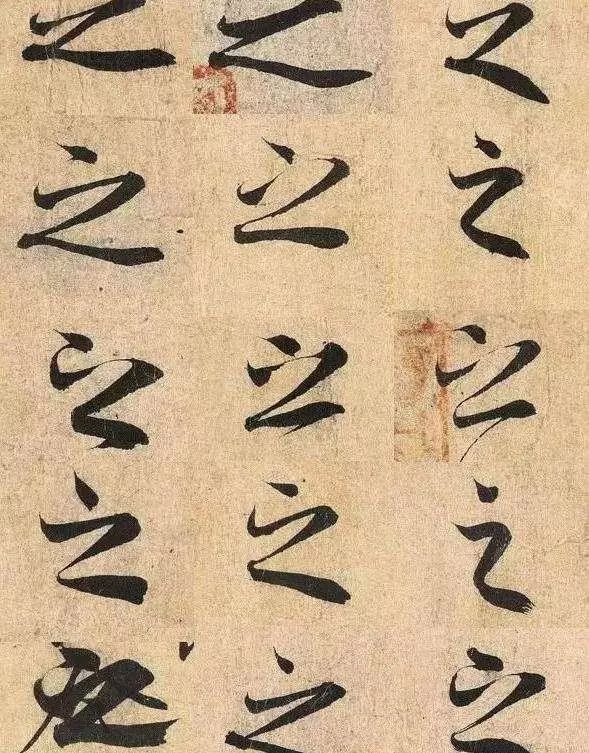 之 之 之
之 之 之
之 之 之
之 之 之
之 之